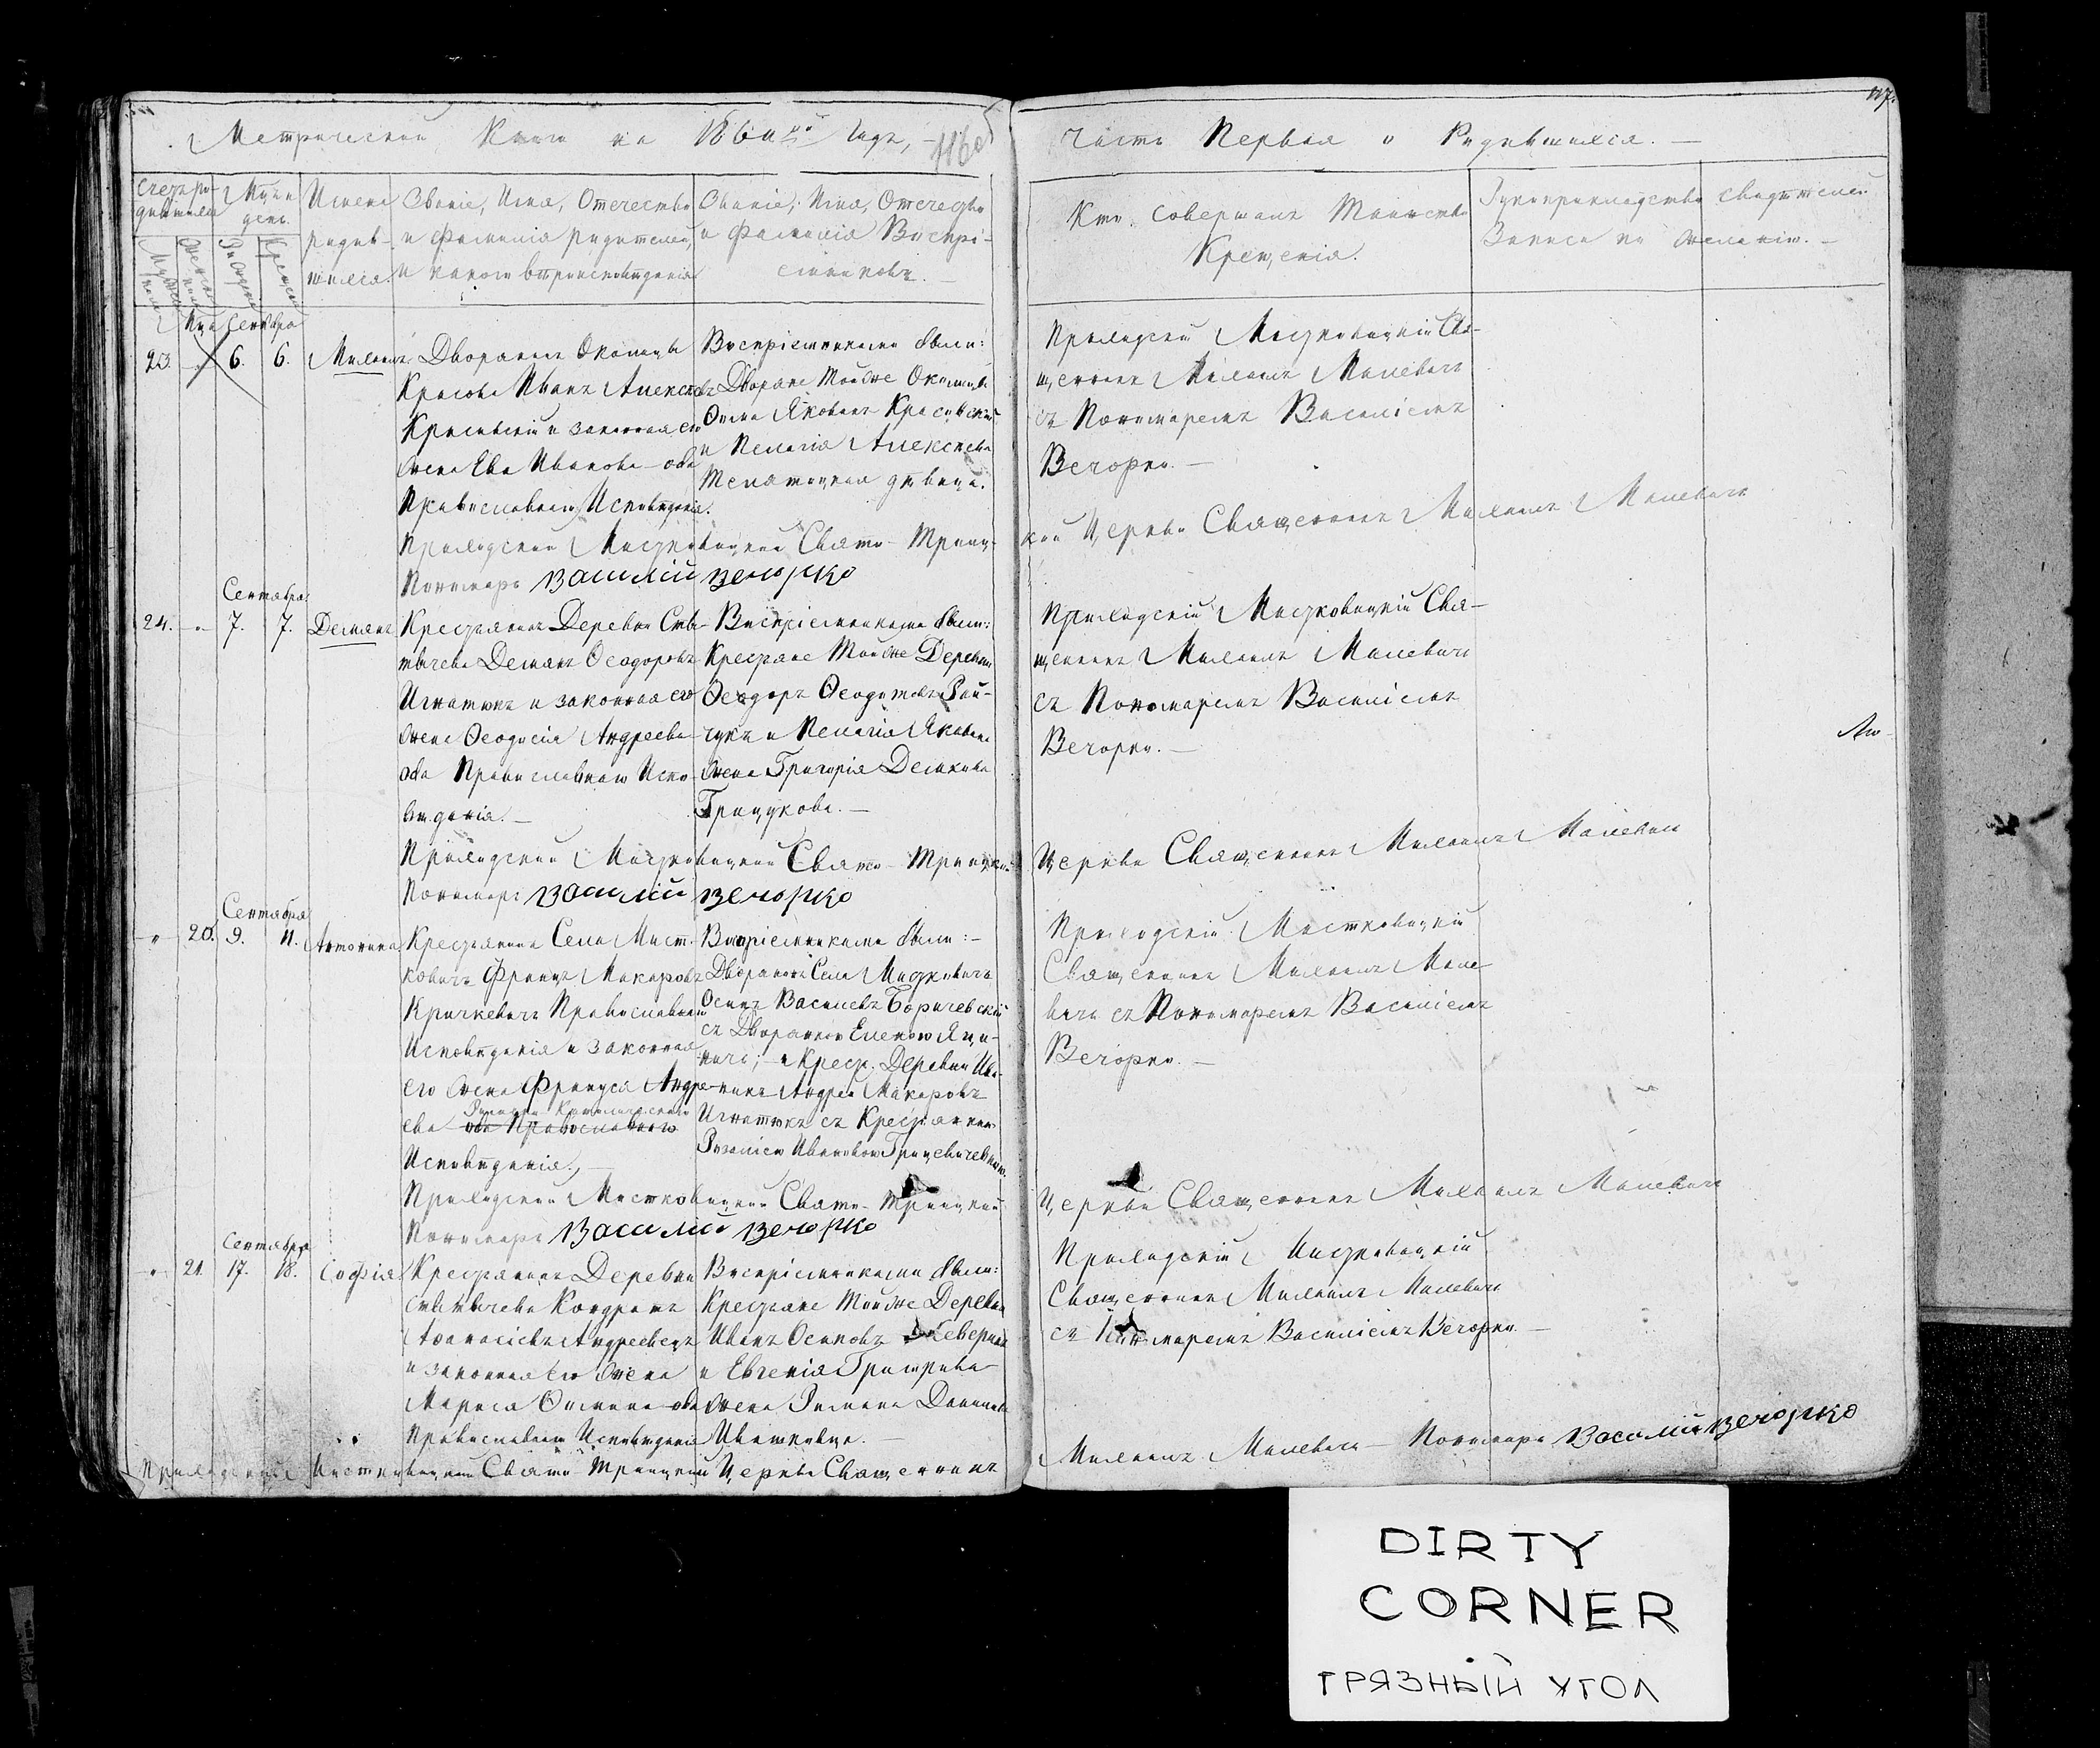 Метрической Книги на 1860ый Годъ, —
1160
Часть Первая о Родившихся. —
117.
Счетъ ро-
дившихся
Мужеска
Женска
Мѣсяцъ
день
Рожденія
Крещенія
Имена
родив-
шихся.
Званіе, Имя, Отечество
и Фамилія родителей,
и какого вѣроисповѣданія
Званіе, Имя, Отечество
и Фамилія Воспрі-
емниковъ. —
Кто совершалъ Таинство
Крещенія.
Рукоприкладство свидѣтелей
Записи по желанію. —
Сентября
23. 6. 6. Михаилъ
Дворянинъ Околицы
Красово Иванъ Алексѣевъ
Красовскій и законная его
жена Ева Иванова оба
Православнаго Исповѣданія.
Воспріемниками были:
Дворяне Тойже Околицы
Яковъ Красовскій
и Пелагія Алексѣева
дѣвица.
Приходскій Мистковицкій Свя-
щенникъ Михаилъ Малевичъ
съ Пономаремъ Василіемъ
Вечорко. —
Приходской Мистковицкой Свято-Троиц-
кой Церкви Священникъ Михаилъ Малевичъ
Пономарь Василій Вечорко
Сентября
24. " 7. 7. Демянъ
Крестьянинъ Деревни
Демянъ Ѳеодоровъ
Игнатюкъ и законная его
жена Ѳеодосія Андреева
оба Православнаго Испо-
вѣданія. —
Воспріемниками были:
Крестьяне Тойже Деревни
Ѳеодоръ
и Пелагія Яковлева
жена Григорія
Грицукова. —
Приходскій Мистковицкій Свя-
щенникъ Михаилъ Малевичъ
съ Пономаремъ Василіемъ
Вечорко. —
Приходской Мистковицкой Свято-Троицкой
Церкви Священникъ Михаилъ Малевичъ
Пономарь Василій Вечорко
Сентября
" 20. 9. 11. Антонина
Крестьянинъ Села Мист-
ковичъ Францъ Макаровъ
Кричкевичъ Православнаго
Исповѣданія и законная
его жена Француся Андре-
ева Римско Католическаго
оба Православнаго
Исповѣданія. —
Воспріемниками были: —
Дворянинъ Села Мистковичъ
Осипъ Васильевъ Боричевскій
съ Дворянкою Еленою
и Крест. Деревни
Андрей Макаровъ
Игнатюкъ съ Крестьянкою
Розаліею Ивановою
Приходскій Мистковицкій
Священникъ Михаилъ Мале-
вичъ съ Пономаремъ Василіемъ
Вечорко. —
Приходской Мистковицкой Свято-Троицкой
Церкви Священникъ Михаилъ Малевичъ
Пономарь Василій Вечорко
Сентября
" 21. 17. 18. Софія
Крестьянинъ Деревни
Кондратъ
Аѳанасіевъ Андреевецъ
и законная его жена
Марися оба
Православнаго Исповѣданія
Воспріемниками были:
Крестьяне Тойже Деревни
Иванъ Осиповъ
и Евгенія Григорьева
жена Романа
Приходскій Мистковицкій
Священникъ Михаилъ Малевичъ
съ Пономаремъ Василіемъ Вечорко. —
Приходской Мистковицкой Свято-Троицкой Церкви Священникъ
Михаилъ Малевичъ — Пономарь Василій Вечорко
DIRTY
CORNER
ГРЯЗНЫЙ УГОЛ